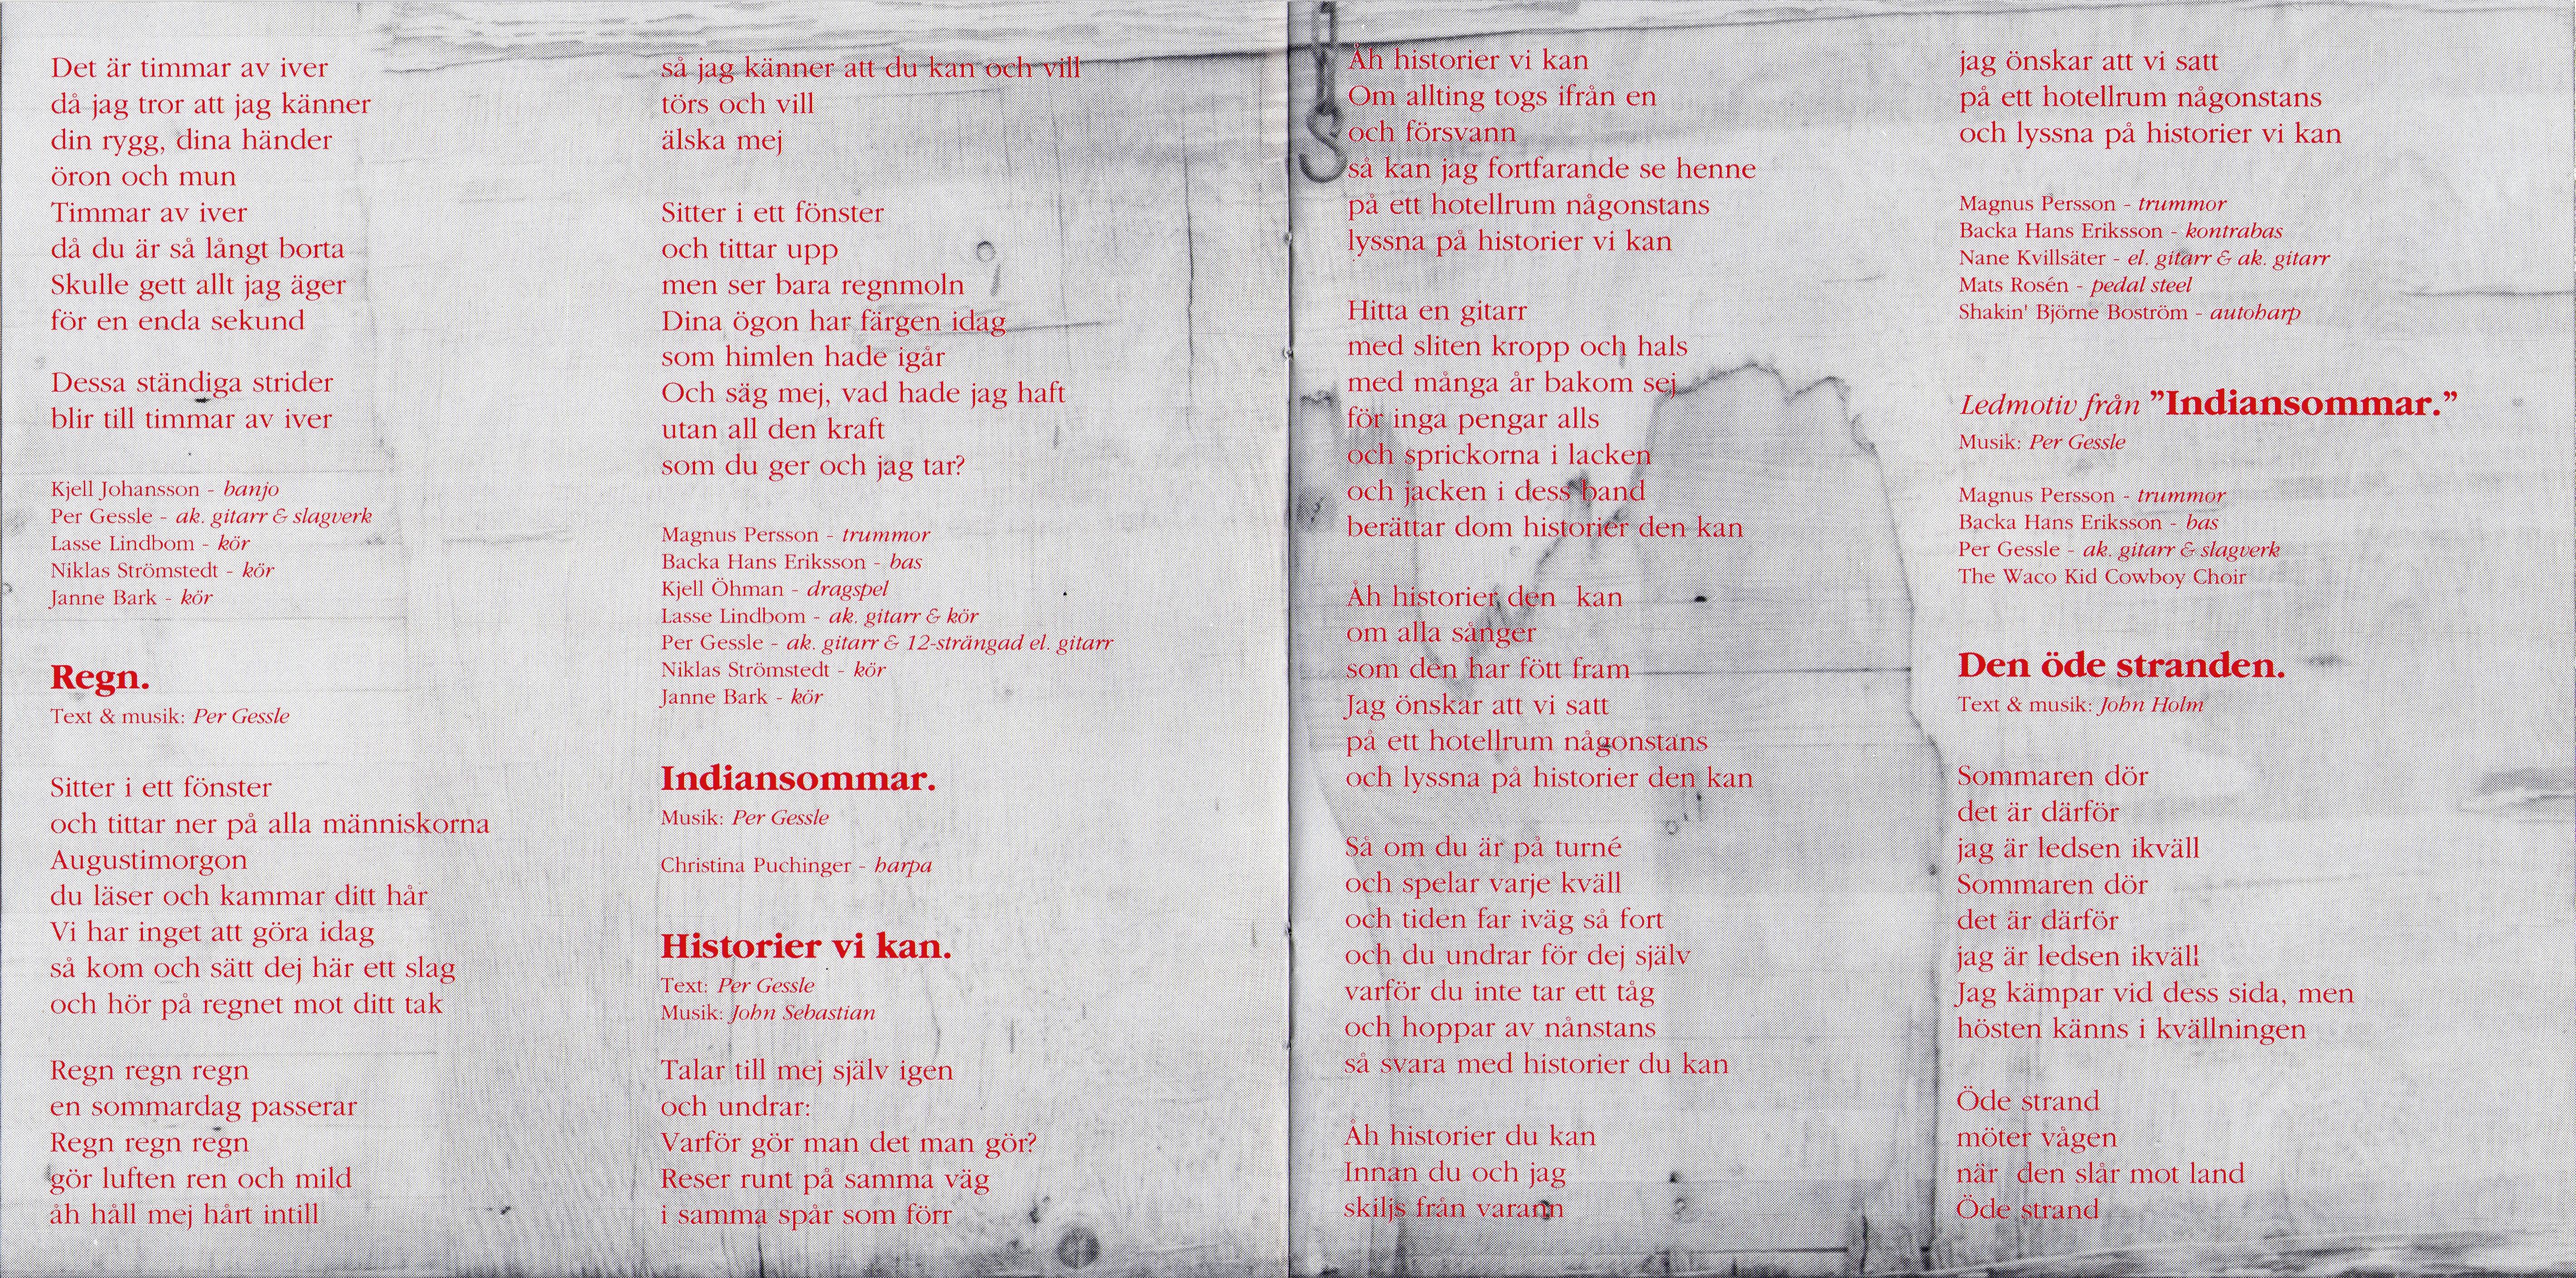 Det är timmar av iver
då jag tror att jag känner
din rygg, dina händer
öron och mun
Timmar av iver
då du är så långt borta
Skulle gett allt jag äger
för en enda sekund
Dessa ständiga strider
blir till timmar av iver
Kjell Johansson - banjo
Per Gessle - ak. gitarr & slagverk
Lasse Lindbom - kör
Niklas Strömstedt - kör
Janne Bark - kör
Regn.
Text & musik: Per Gessle
Sitter i ett fönster
och tittar ner på alla människorna
Augustimorgon
du läser och kammar ditt hår
Vi har inget att göra idag
så kom och sätt dej här ett slag
och hör på regnet mot ditt tak
Regn regn regn
en sommardag passerar
Regn regn regn
gör luften ren och mild
åh håll mej hårt intill
så jag känner att du kan och vill
törs och vill
älska mej
Sitter i ett fönster
och tittar upp
men ser bara regnmoln
Dina ögon har färgen idag
som himlen hade igår
Och säg mej, vad hade jag haft
utan all den kraft
som du ger och jag tar?
Magnus Persson - trummor
Backa Hans Eriksson - bas
Kjell Öhman - dragspel
Lasse Lindbom - ak. gitarr & kör
Per Gessle - ak. gitarr & 12-strängad el. gitarr
Niklas Strömstedt - kör
Janne Bark - kör
Indiansommar.
Musik: Per Gessle
Christina Puchinger - harpa
Historier vi kan.
Text: Per Gessle
Musik: John Sebastian
Talar till mej själv igen
och undrar:
Varför gör man det man gör?
Reser runt på samma väg
i samma spår som förr
Åh historier vi kan
Om allting togs ifrån en
och försvann
så kan jag fortfarande se henne
på ett hotellrum någonstans
lyssna på historier vi kan
Hitta en gitarr
med sliten kropp och hals
med många år bakom sej
för inga pengar alls
och sprickorna i lacken
och jacken i dess band
berättar dom historier den kan
Åh historier den kan
om alla sånger
som den har fött fram
Jag önskar att vi satt
på ett hotellrum någonstans
och lyssna på historier den kan
Så om du är på turné
och spelar varje kväll
och tiden far iväg så fort
och du undrar för dej själv
varför du inte tar ett tåg
och hoppar av nånstans
så svara med historier du kan
Åh historier du kan
Innan du och jag
skiljs från varann
jag önskar att vi satt
på ett hotellrum någonstans
och lyssna på historier vi kan
Magnus Persson - trummor
Backa Hans Eriksson - kontrabas
Nane Kvillsäter - el. gitarr & ak. gitarr
Mats Rosén - pedal steel
Shakin' Björne Boström - autoharp
Ledmotiv från ”Indiansommar.”
Musik: Per Gessle
Magnus Persson - trummor
Backa Hans Eriksson - bas
Per Gessle - ak. gitarr & slagverk
The Waco Kid Cowboy Choir
Den öde stranden.
Text & musik: John Holm
Sommaren dör
det är därför
jag är ledsen ikväll
Sommaren dör
det är därför
jag är ledsen ikväll
Jag kämpar vid dess sida, men
hösten känns i kvällningen
Öde strand
möter vågen
när den slår mot land
Öde strand